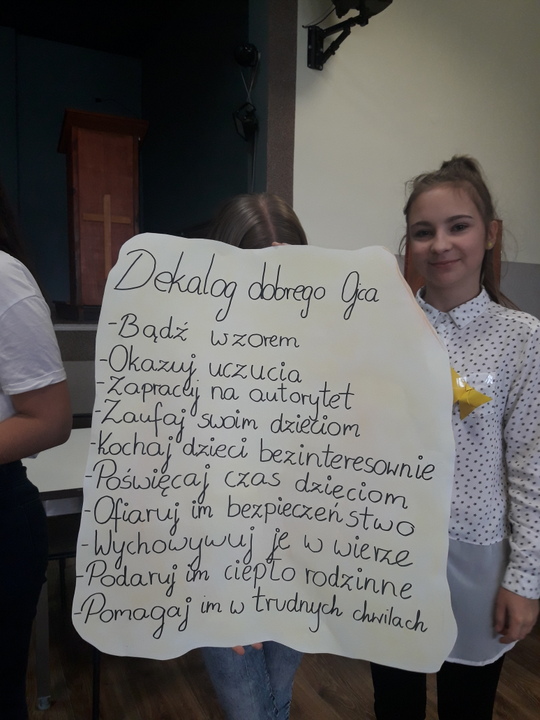 Dekalog dobrego Ojca
-Bądź wzorem
-Okazuj uczucia
-Zapracuj na autorytet
-Zaufaj swoim dzieciom
-Kochaj dzieci bezinteresownie
-Poświęcaj czas dzieciom
-Ofiaruj im bezpieczeństwo
-Wychowywuj je w wierze
-Podaruj im ciepło rodzinne
-Pomagaj im w trudnych chwilach